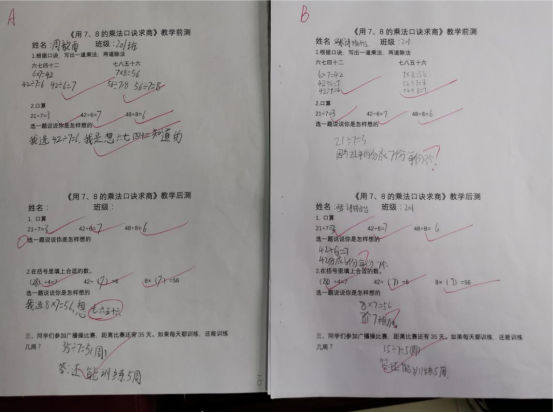 A
《用7、8的乘法口诀求商》教学前测
姓名： 班级：201班
1.根据口诀，写出一道乘法、两道除法
六七四十二 七八五十六
6×7=42 7×8=56
42÷7=6 42÷6=7 56÷7=8 56÷8=7
2.口算
21÷7=3 42÷6=7 48÷8=6
选一题说说你是怎样想的
我选42÷7=6，我是想
《用7、8的乘法口诀求商》教学后测
姓名： 班级：
1. 口算
21÷7=3 42÷6=7 48÷8=6
选一题说说你是怎样想的
2.在括号里填上合适的数。
(28)÷4=7 42÷(7)=6 8×(7)=56
选一题说说你是怎样想的
我选8×7=56，想七八五十六
三、同学们参加广播操比赛，距离比赛还有35天。如果每天都训练，还能训练
几周？
35÷7=5(周)
答：还能训练5周
B
《用7、8的乘法口诀求商》教学前测
姓名： 班级：201
1.根据口诀，写出一道乘法、两道除法
六七四十二 七八五十六
6×7=42 7×8=56
2.口算
21÷7=3 42÷6=7 48÷8=6
选一题说说你是怎样想的
21÷7=3
《用7、8的乘法口诀求商》教学后测
姓名： 班级：201
1. 口算
21÷7=3 42÷6=7 48÷8=6
选一题说说你是怎样想的
42÷6=7
2.在括号里填上合适的数。
(28)÷4=7 42÷(7)=6 8×(7)=56
选一题说说你是怎样想的
8×7=56
三、同学们参加广播操比赛，距离比赛还有35天。如果每天都训练，还能训练
几周？
35÷7=5(周)
答：还能训练5周